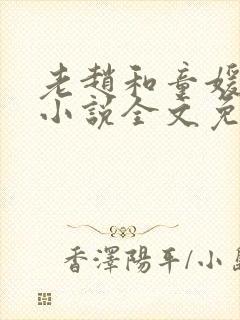 老趙和童媛
小說全文免
香澤陽平/小島